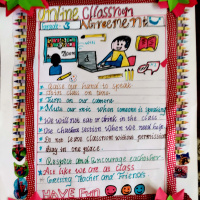 Online Classroom
Grade 3
Raise our hand to speak
Join class on time
Turn on our camera
Mute our mic when someone is speaking
We will not eat or drink in the class
Use Chatting section when we need help
Do not leave classroom without permission
Stay in the place
Respect and Encourage eachother
Act like we are in class
Greeting Teacher and Friends
HAVE FUN